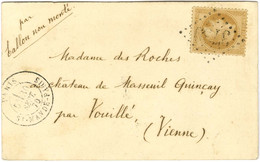 par
ballon non monté
Madame des Roches
Château de Masseuil Quinçay
par Vouillé
(Vienne)
PARIS